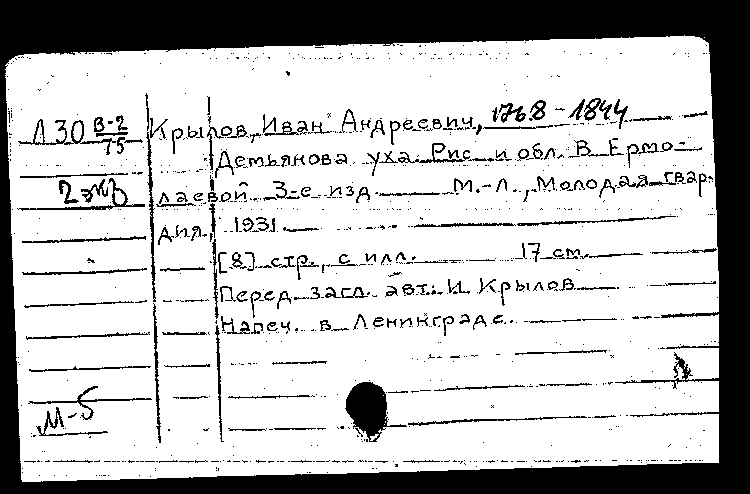 Л30 В-2/75 Крылов, Иван Андреевич, 1768-1844
Демьянова уха. Рис. и обл. В. Ермо-
2 экз лаевой. 3-е изд. М.-Л., Молодая гвар-
дия, 1931.
[8] стр., с илл. 17 см.
Перед. загл. авт.: И. Крылов
Напеч. в Ленинграде.
М-5